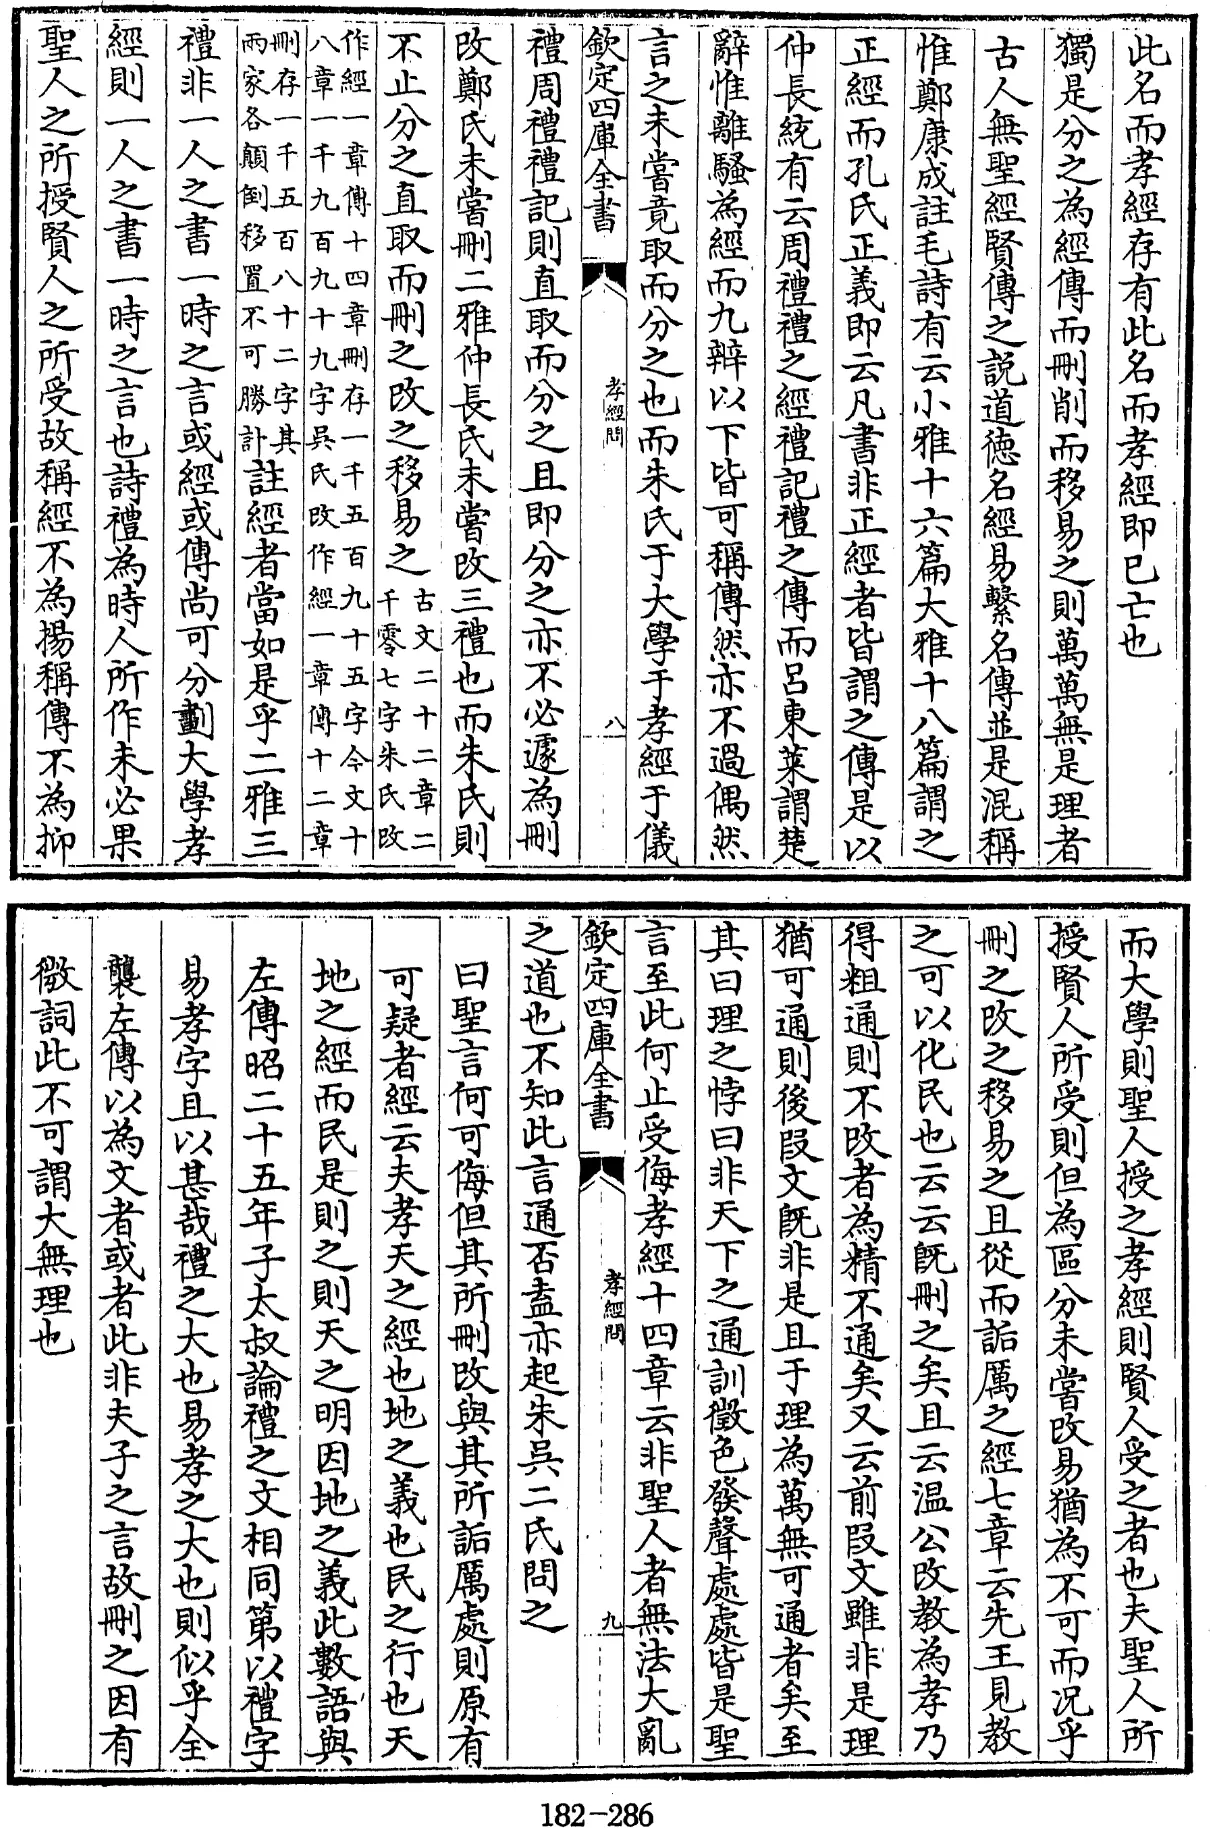 此名而孝經存有此名而孝經即已亡也
獨是分之為經傳而刪削而移易之則萬萬無是理者
古人無聖經賢傳之説道徳名經易繫名傳並是混稱
惟鄭康成註毛詩有云小雅十六篇大雅十八篇謂之
正經而孔氏正義即云凡書非正經者皆謂之傳是以
仲長統有云周禮禮之經禮記禮之傳而呂東萊謂楚
辭惟離騷為經而九辯以下皆可稱傳然亦不過偶然
言之未嘗竟取而分之也而朱氏于大學于孝經于儀
欽定四庫全書
孝經問
八
禮周禮禮記則直取而分之且即分之亦不必遽為刪
改鄭氏未嘗刪二雅仲長氏未嘗改三禮也而朱氏則
不止分之直取而刪之改之移易之
古文二十二章二
千零七字朱氏改
作經一章傳十四章刪存一千五百九十五字今文十
八章一千九百九十九字吳氏改作經一章傳十二章
刪存一千五百八十二字其
兩家各顛倒移置不可勝計
註經者當如是乎二雅三
禮非一人之書一時之言或經或傳尚可分劃大學孝
經則一人之書一時之言也詩禮為時人所作未必果
聖人之所授賢人之所受故稱經不為揚稱傳不為抑
而大學則聖人授之孝經則賢人受之者也夫聖人所
授賢人所受則但為區分未嘗改易猶為不可而况乎
刪之改之移易之且從而詬厲之經七章云先王見教
之可以化民也云云既刪之矣且云温公改教為孝乃
得粗通則不改者為精不通矣又云前段文雖非是理
猶可通則後段文既非是且于理為萬無可通者矣至
其曰理之悖曰非天下之通訓徵色發聲處處皆是聖
言至此何止受侮孝經十四章云非聖人者無法大亂
欽定四庫全書
孝經問
九
之道也不知此言通否盍亦起朱吳二氏問之
曰聖言何可侮但其所刪改與其所詬厲處則原有
可疑者經云夫孝天之經也地之義也民之行也天
地之經而民是則之則天之明因地之義此數語與
左傳昭二十五年子太叔論禮之文相同第以禮字
易孝字且以甚哉禮之大也易孝之大也則似乎全
襲左傳以為文者或者此非夫子之言故刪之因有
微詞此不可謂大無理也
182-286